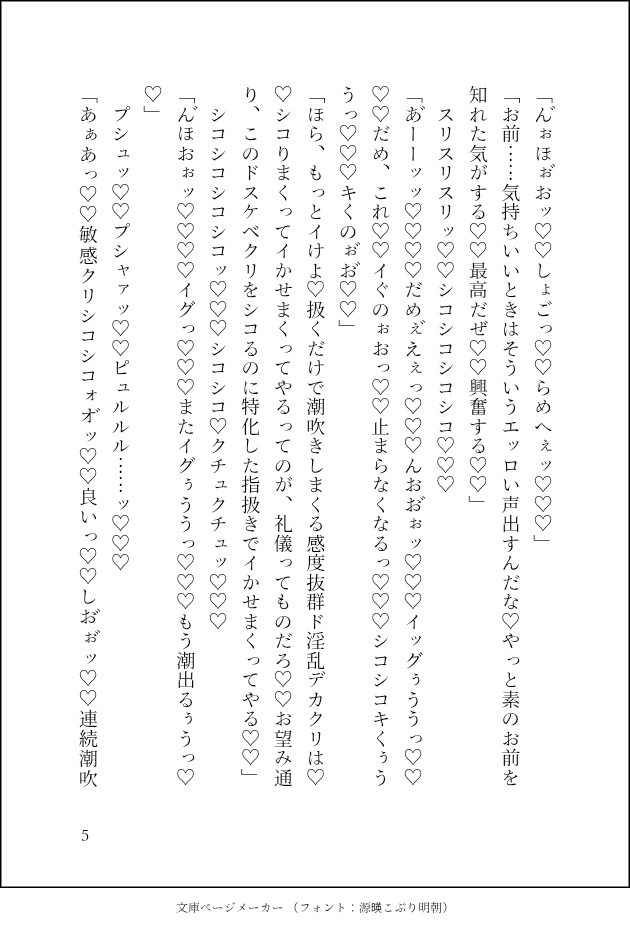 「ん゙ぉほぉ゙おッ♡♡しょごっ♡♡らめへぇッ♡♡♡」
「お前……気持ちいいときはそういうエッロい声出すんだな♡やっと素のお前を
知れた気がする♡♡最高だぜ♡♡興奮する♡♡」
　スリスリスリッ♡♡シコシコシコシコ♡♡♡
「あ゙ーーッッ♡♡♡♡だめぇ゙えぇっ♡♡♡んおお゙ぉッ♡♡♡イッグぅううっ♡♡
♡♡だめ、これ♡♡イぐのぉおっ♡♡止まらなくなるっ♡♡♡シコシコキくぅう
うっ♡♡♡キくのぉ゙お゙♡♡」
「ほら、もっとイけよ♡扱くだけで潮吹きしまくる感度抜群ド淫乱デカクリは♡
♡シコりまくってイかせまくってやるってのが、礼儀ってものだろ♡♡お望み通
り、このドスケベクリをシコるのに特化した指扱きでイかせまくってやる♡♡」
　シコシコシコシコッ♡♡♡シコシコ♡クチュクチュッ♡♡♡
「ん゙ほおぉッ♡♡♡♡イグっ♡♡♡またイグぅううっ♡♡♡もう潮出るぅうっ♡
♡」
　プシュッ♡♡プシャァッ♡♡ピュルルル……ッ♡♡♡
「あぁあっ♡♡敏感クリシコシコォオ゙ッ♡♡良いっ♡♡しお゙ぉ゙ッ♡♡連続潮吹
5
文庫ページメーカー （フォント：源暎こぶり明朝）